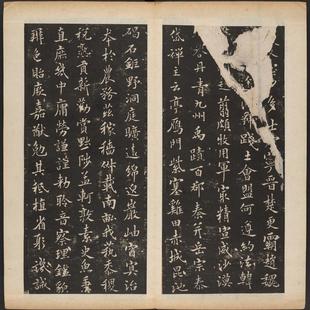 士寔寧晉楚更霸趙魏
踐土會盟何遵約法韓
翦頗牧用軍最精宣威沙漠
丹青九州禹蹟百郡秦并岳宗泰
岱禪主云亭雁門紫塞雞田赤城昆池
碣石鉅野洞庭曠遠綿邈巖岫杳冥治
本於農務茲稼穡俶載南畝我藝黍稷
稅熟貢新勸賞黜陟孟軻敦素史魚秉
直庶幾中庸勞謙謹勅聆音察理鑑貌
辨色貽厥嘉猷勉其祗植省躬譏誡